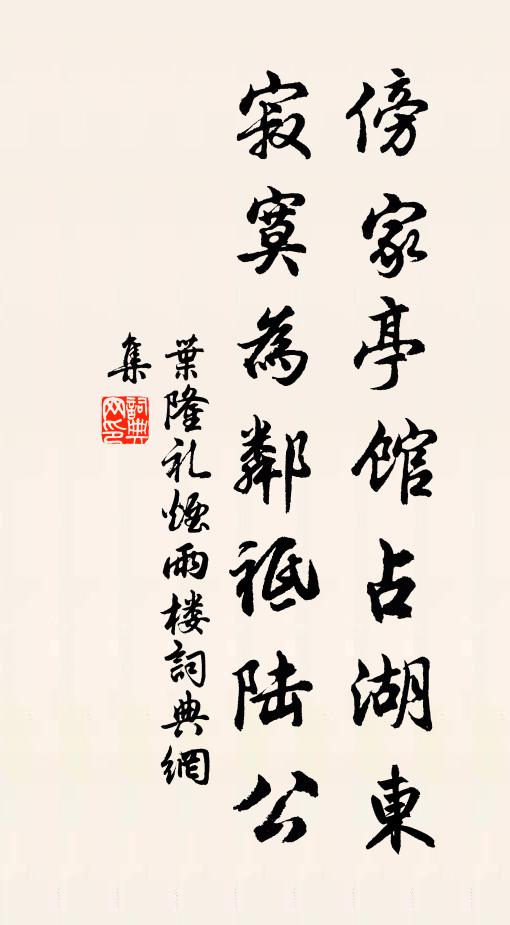 傍家亭館占湖東
寂寞為鄰祗陆公
葉隆礼煙雨楼詞典網
集
詞典
网印